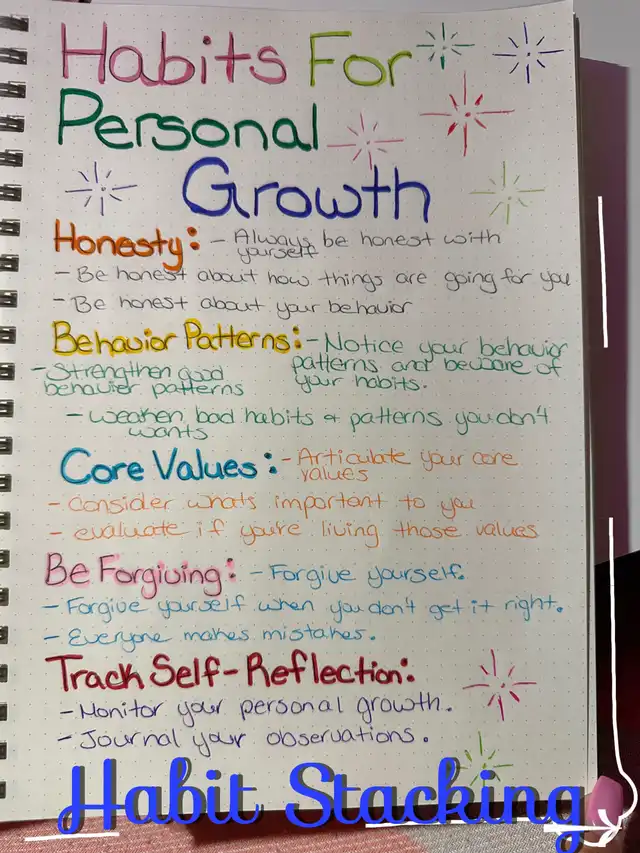 Habits For
Personal
Growth
Honesty: - Always be honest with
yourself
- Be honest about how things are going for you
- Be honest about your behavior
Behavior Patterns: - Notice your behavior
patterns and beware of
your habits.
- Strengthen good
behavior patterns
- weaken bad habits + patterns you don't
wants
Core Values: - Articulate your core
values
- Consider whats important to you
- evaluate if you're living those values
Be Forgiving: - Forgive yourself.
- Forgive yourself when you don't get it right.
- Everyone makes mistakes.
Track Self-Reflection:
- Monitor your personal growth.
- Journal your observations.
Habit Stacking